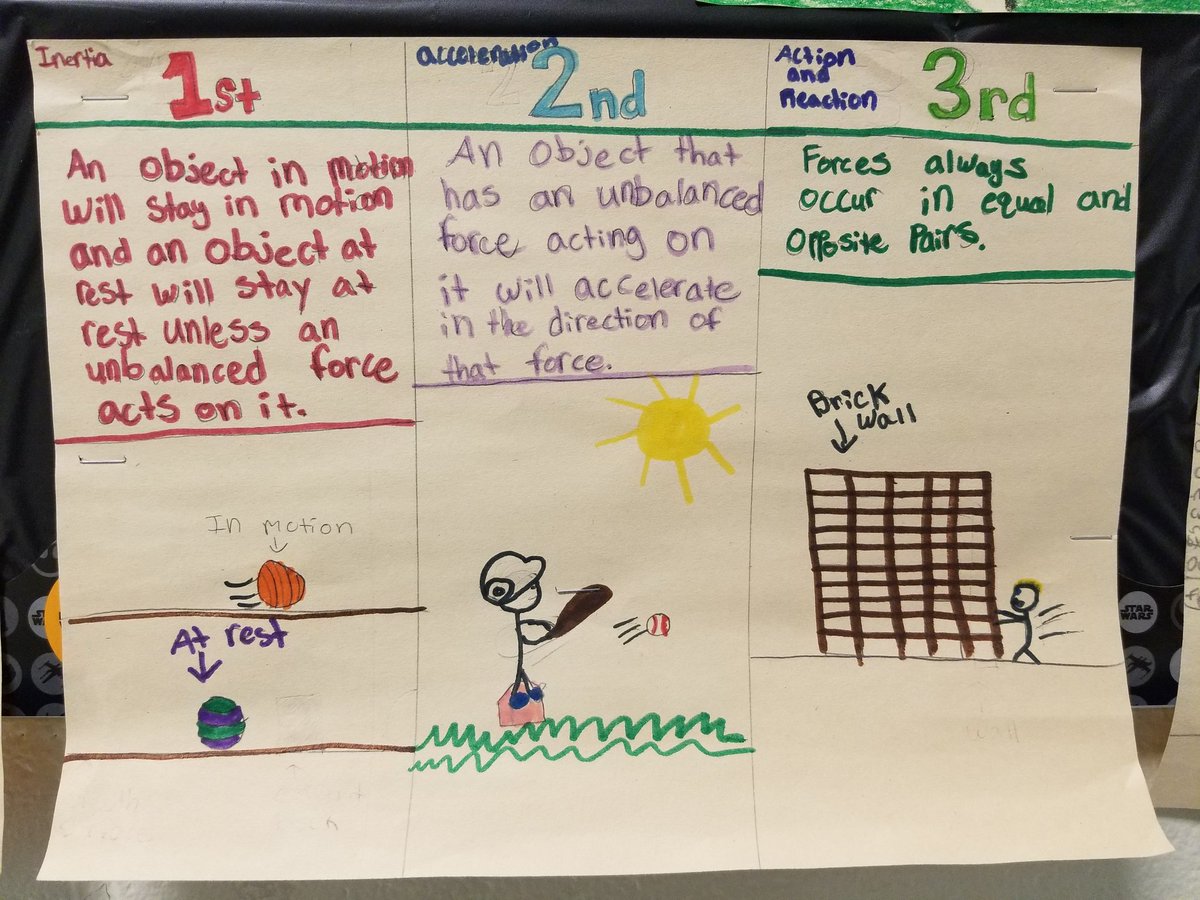 Inertia
1st
An Object in motion
will stay in motion
and an object at
rest will stay at
rest unless an
unbalanced force
acts on it.
In motion
At rest
acceleration
2nd
An Object that
has an unbalanced
force acting on
it will accelerate
in the direction of
that force.
Action
and
Reaction
3rd
Forces always
occur in equal and
opposite Pairs.
Brick
Wall
STAR
WARS